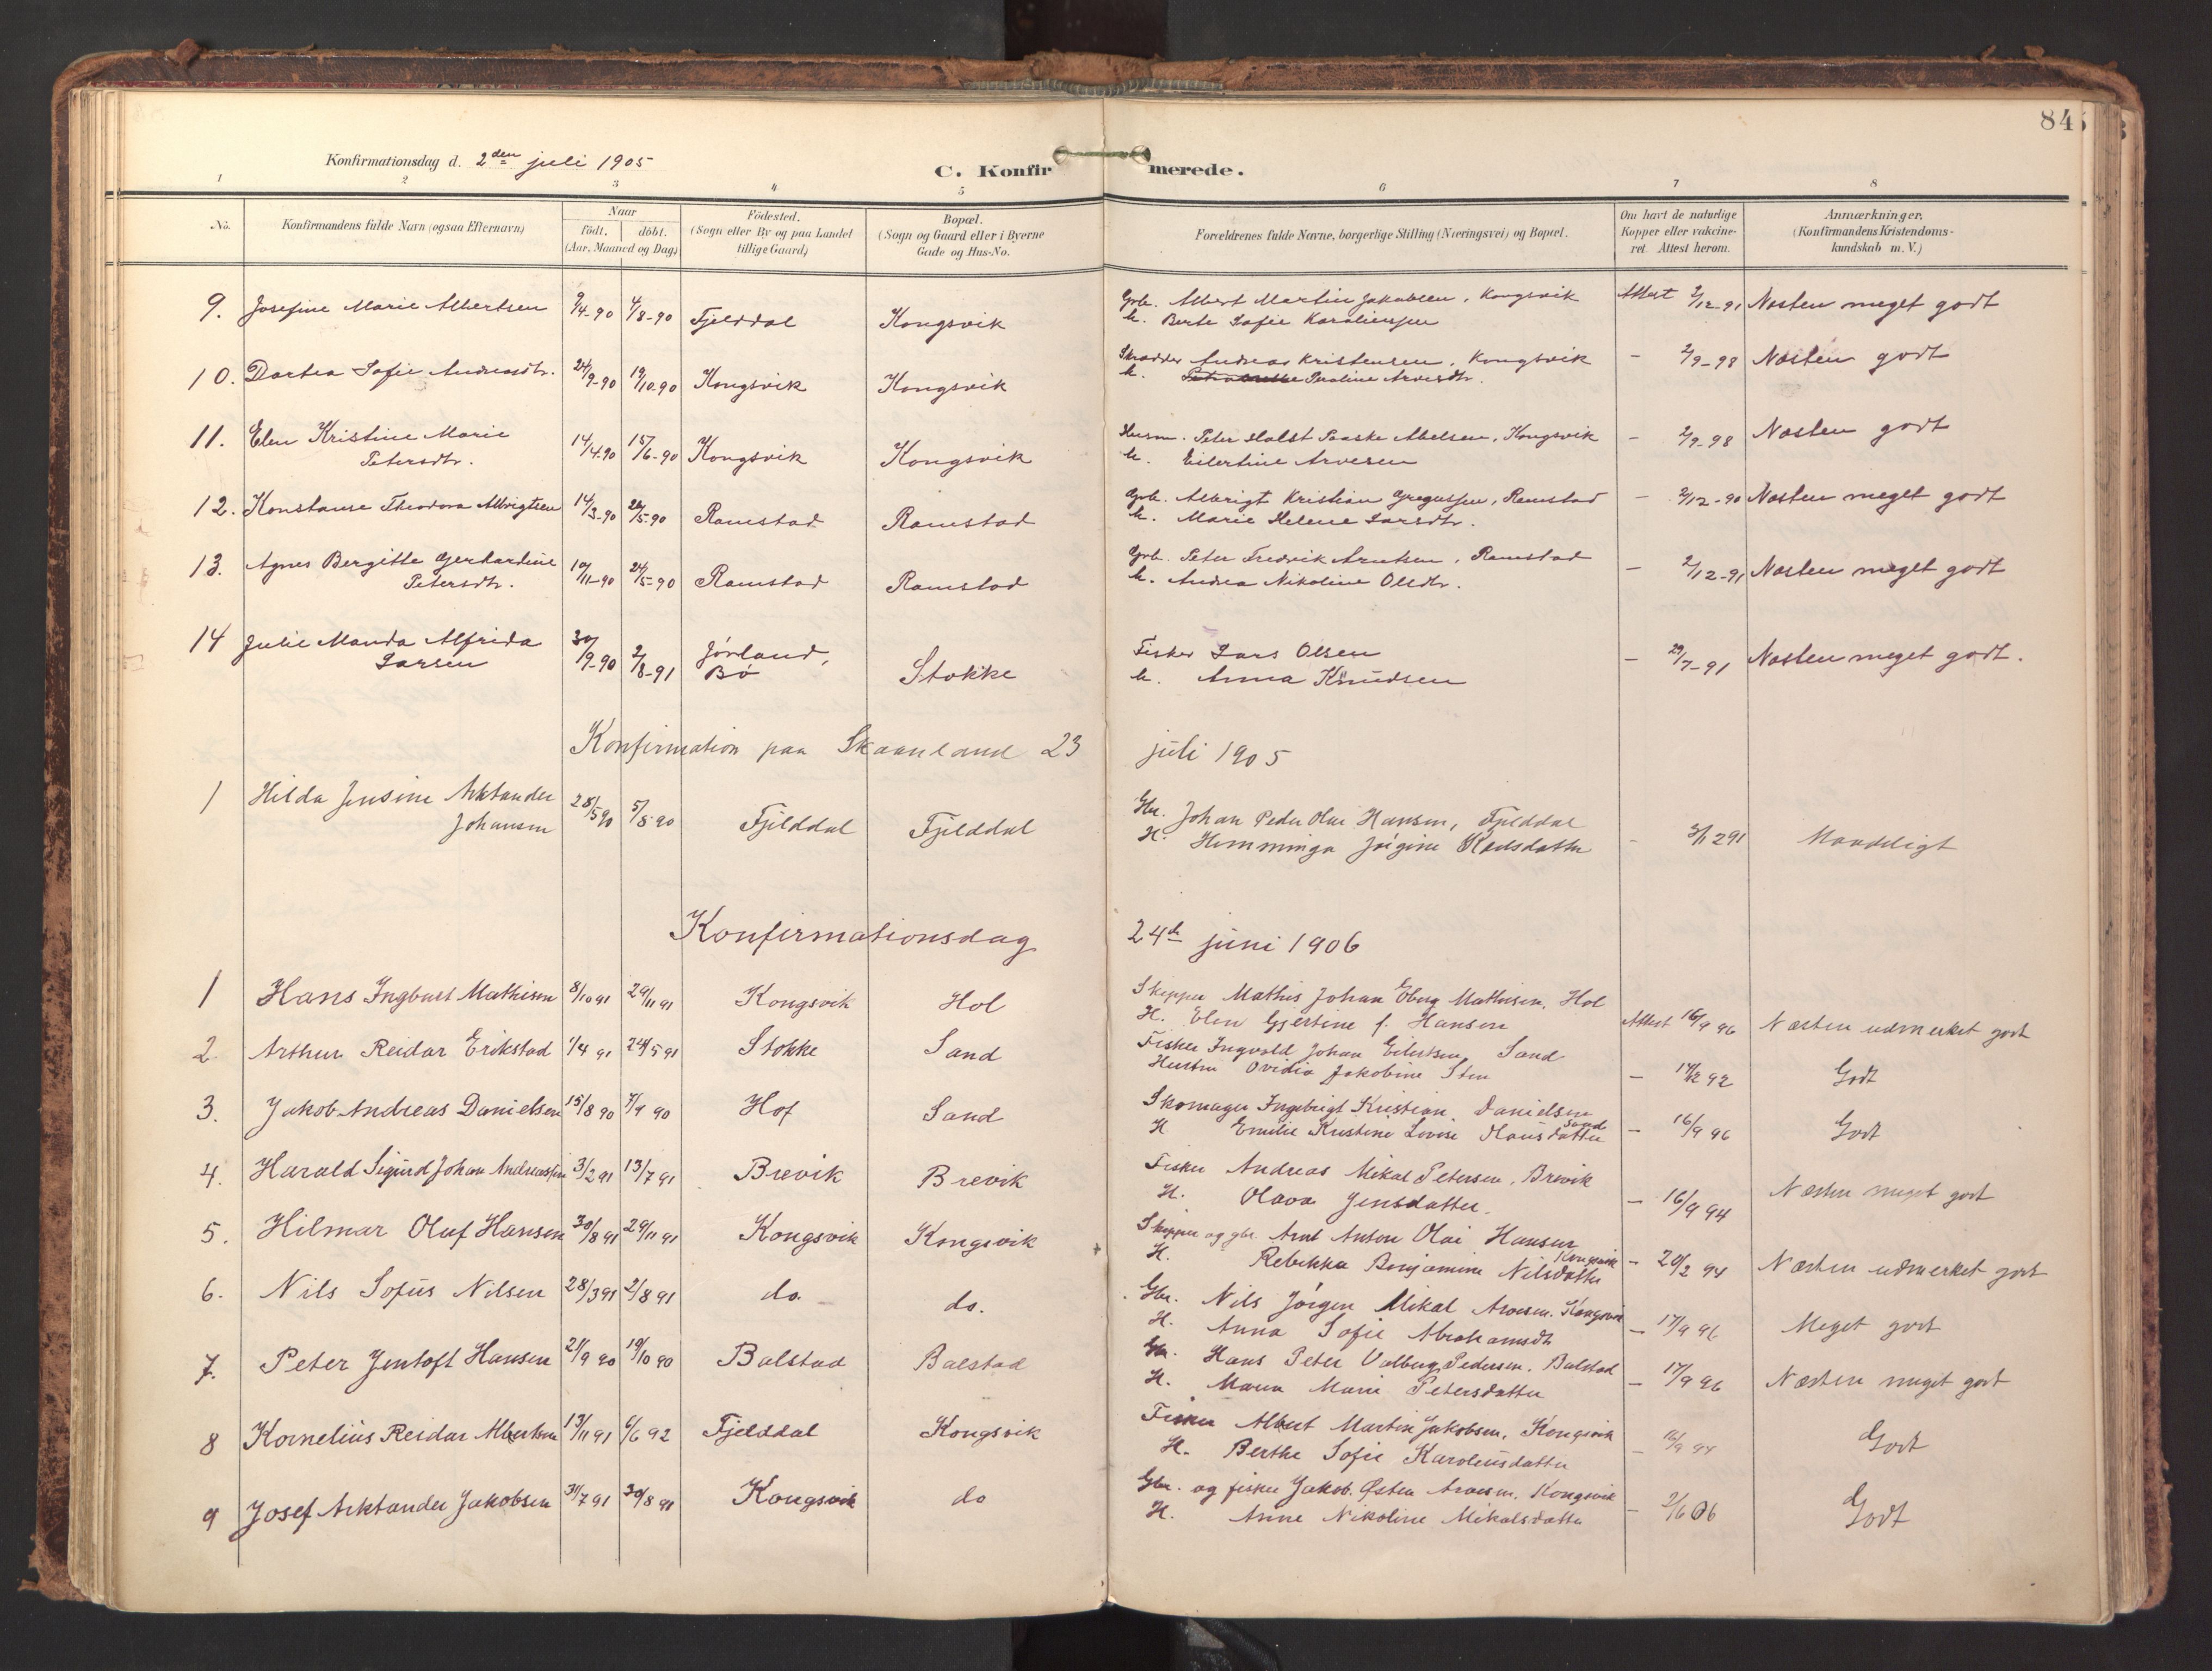 84
Konfirmationsdag d. 2den juli 1905
C. Konfirmerede.
1 2 3 4 5 6 7 8
No.
Konfirmandens fulde Navn (ogsaa Efternavn)
Naar
födt. döbt.
(Aar, Maaned og Dag)
Födested.
(Sogn eller By og paa Landet
tillige Gaard)
Bopæl.
(Sogn og Gaard eller i Byerne
Gade og Hus-No.
Forældrenes fulde Navne, borgerlige Stilling (Næringsvei) og Bopæl.
Om havt de naturlige
Kopper eller vakcine-
ret. Attest herom.
Anmærkninger.
(Konfirmandens Kristendoms-
kundskab m. V.)
9. Josefine Marie Albertsen 9/4-90 4/8-90 Fjelddal Kongsvik Grb. Albert Martin Jakobsen, Kongsvik Attest 2/12-91 Næsten meget godt
h. Berte Sofie
10. Dortea Sofie Andreasdtr. 24/9-90 19/10-90 Kongsvik Kongsvik Skrædder Andreas Kristensen, Kongsvik - 2/9-98 Næsten godt
h. Arvesdtr.
11. Elen Kristine Marie
Petersdtr. 14/4-90 15/6-90 Kongsvik Kongsvik Husm. Peter Holst Paaske Abelsen, Kongsvik - 2/9-98 Næsten godt
h. Eilertine Arvesen
12. Konstanse Theodora Albrigtsen 14/3-90 26/5-90 Ramstad Ramstad Grb. Albrigt Kristian Gregussen, Ramstad - 2/12-90 Næsten meget godt
h. Marie Helene Larsdtr.
13. Agnes Bergitte Gerhardine
Petersdtr. 10/11-90 24/5-90 Ramstad Ramstad Grb. Peter Fredrik Arntsen, Ramstad - 2/12-91 Næsten meget godt
h. Andrea Nikoline Olsdtr.
14 Julie Manda Alfrida
Larsen 30/9-90 2/8-91 Jørland,
Bø Stokke Fisker Lars Olsen - 29/7-91 Næsten meget godt.
h. Anna Knudsen
Konfirmation paa Skaanland 23 juli 1905
1 Hilda Jensine Arktander
Johansen 28/5 90 5/8 90 Fjelddal Fjelddal Gbr. Johan Peder Olai Hansen, Fjelddal - 3/12 91 Maadeligt
H. Hemminga Jørgine
Konfirmationsdag 24de juni 1906
1 Hans Ingbart Mathisen 8/10 91 29/11 91 Kongsvik Hol Skipper Mathis Johan Eberg Mathisen, Hol
H. Elen Gjertine f. Hansen Attest 16/9 96 Næsten udmerket godt
2 Arthur Reidar Erikstad 1/4 91 24/5 91 Stokke Sand Fisker Ingvald Johan Eilertsen, Sand
Hustru Ovidia Jakobine Sten - 92 Godt
3. Jakob Andreas Danielsen 15/8 90 7/9 90 Hof Sand Skomager Ingebrigt Kristian Danielsen
Sand
H Emilie Kristine Lovise Hansdatter - 16/9 96 Godt
4. Harald Sigurd Johan Andreassen 3/2 91 13/7 91 Brevik Brevik Fisker Andreas Mikal Petersen, Brevik
H. Olava Jensdatter. - 16/9 94 Næsten meget godt
5. Hilmar Oluf Hansen 30/8 91 29/11 91 Kongsvik Kongsvik Skipper og gbr. Arnt Anton Olai Hansen
Kongsvik
H. Rebekka Benjamine Nilsdatter - 20/2 94 Næsten udmerket godt
6. Nils Sofus Nilsen 28/3 91 2/8 91 do. do. Gbr. Nils Jørgen Mikal Arvesen. Kongsvik
H. Anna Sofie Abrahamsdt - 17/9 96 Meget godt
7. Peter Jentoft Hansen 21/9 90 19/10 90 Balstad Balstad Gbr. Hans Peter Valberg Pedersen. Balstad
H. Maren Marie Petersdatter - 17/9 96 Næsten meget godt
8 Kornelius Reidar Albertsen 13/11 91 6/6 92 Fjelddal Kongsvik Fisker Albert Martin Jakobsen, Kongsvik
H. Berthe Sofie Karoliusdatter - 16/9 94 Godt
9 Josef Arktander Jakobsen 31/7 91 30/8 91 Kongsvik do Gbr. og fisker Jakob Østen Arvesen. Kongsvik
H. Anne Nikoline Mikalsdatter - 2/6 06 Godt